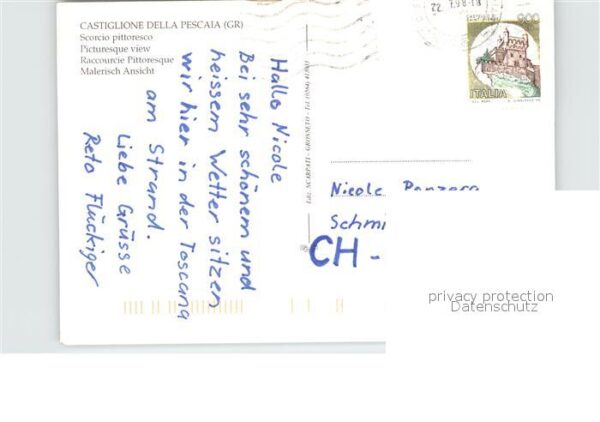 CASTIGLIONE DELLA PESCAIA (GR)
Scorcio pittoresco
Picturesque view
Raccourcie Pittoresque
Malerisch Ansicht
Hallo Nicole
Bei sehr schönem und
heissem Wetter sitzen
wir hier in der Toscana
am Strand.
Liebe Grüsse
Reto Flückiger
Ediz. SCARPATI - GROSSETO - Tel.
900
ITALIA
Nicole
Schmi
CH -
privacy protection
Datenschutz